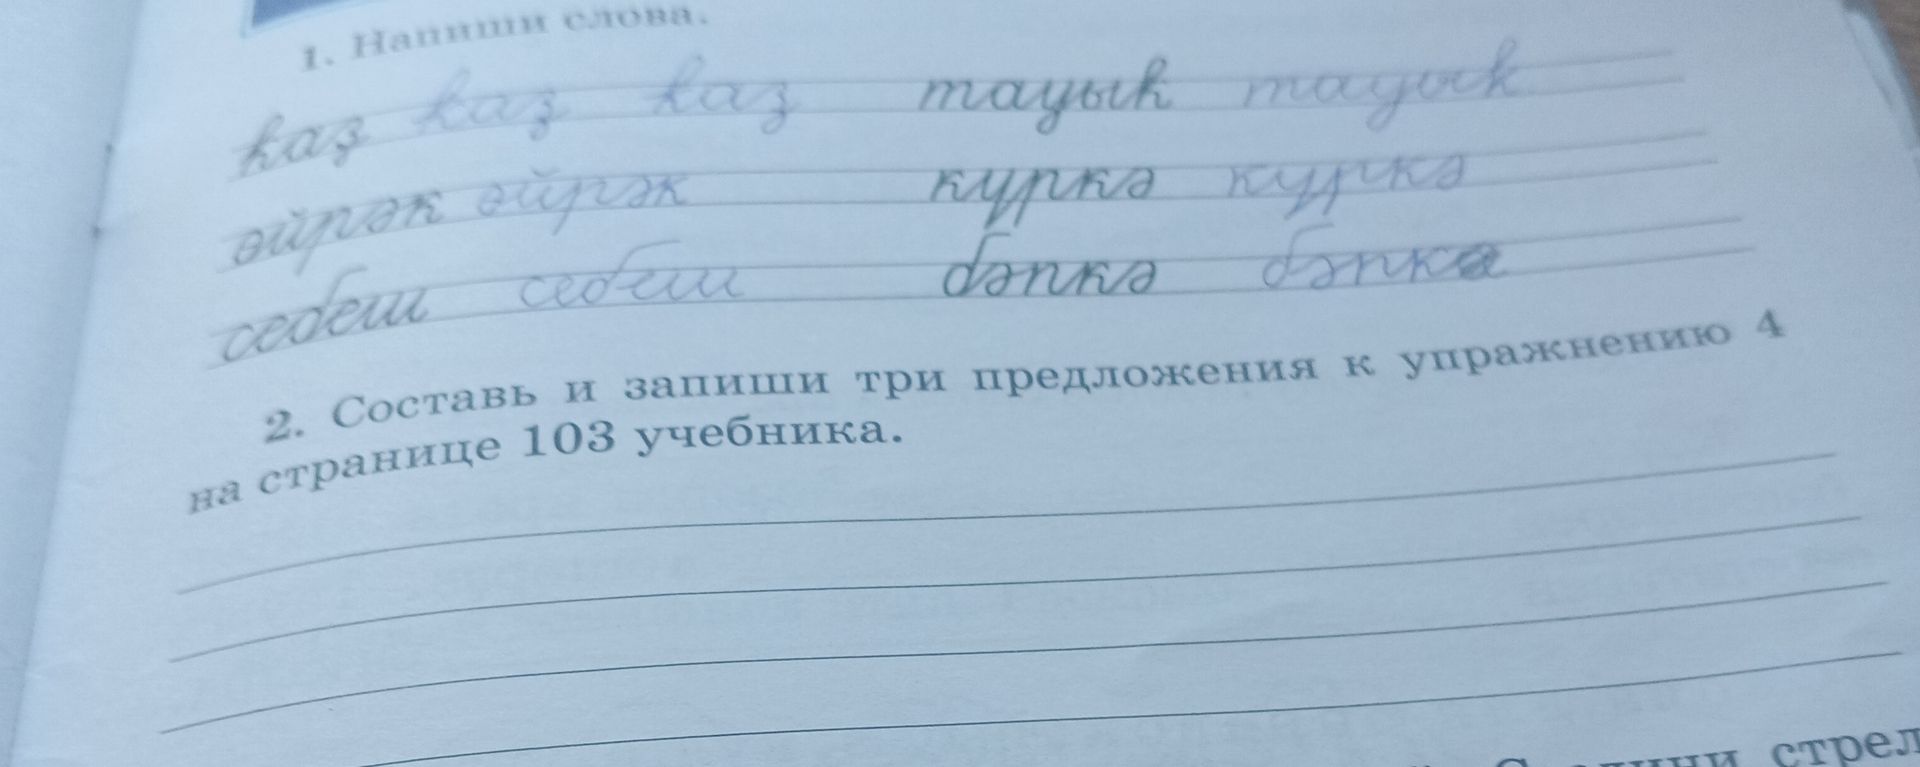 1. Напиши слова.
ҡаҙ ҡаҙ ҡаҙ тауыҡ тауыҡ
өйрәк өйрәк күркә күркә
себеш себеш бәпкә бәпкә
2. Составь и запиши три предложения к упражнению 4
на странице 103 учебника.